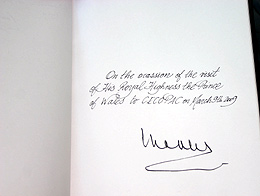 On the ocassion of the visit
of His Royal Highness the Prince
of Wales to CECOPAC on March 9th 2009
Charles